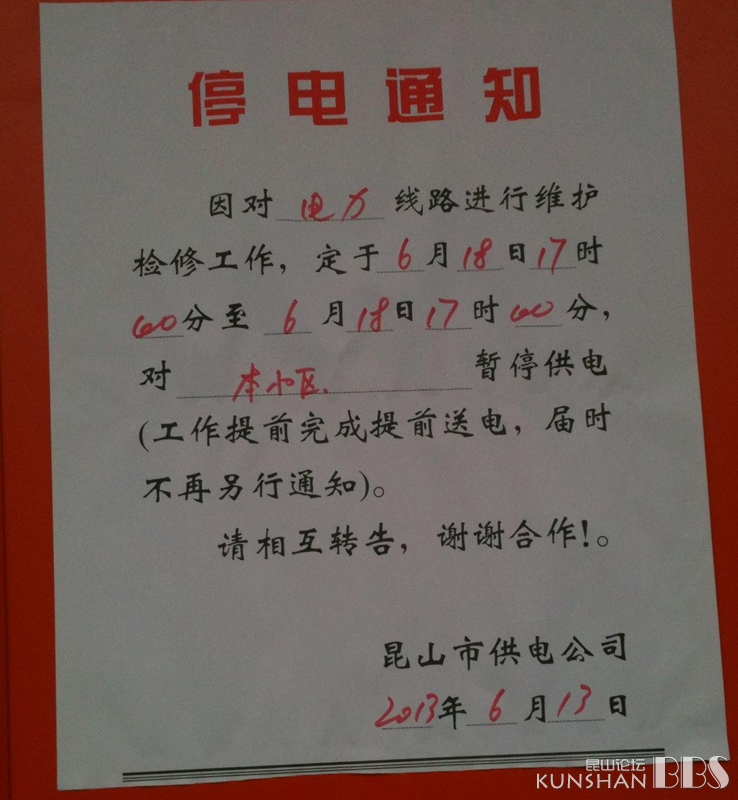 停电通知
因对电力线路进行维护
检修工作，定于6月18日17时
00分至6月18日17时00分，
对本小区.暂停供电
(工作提前完成提前送电，届时
不再另行通知)。
请相互转告，谢谢合作!。
昆山市供电公司
2013年6月13日
昆山论坛
KUNSHAN BBS